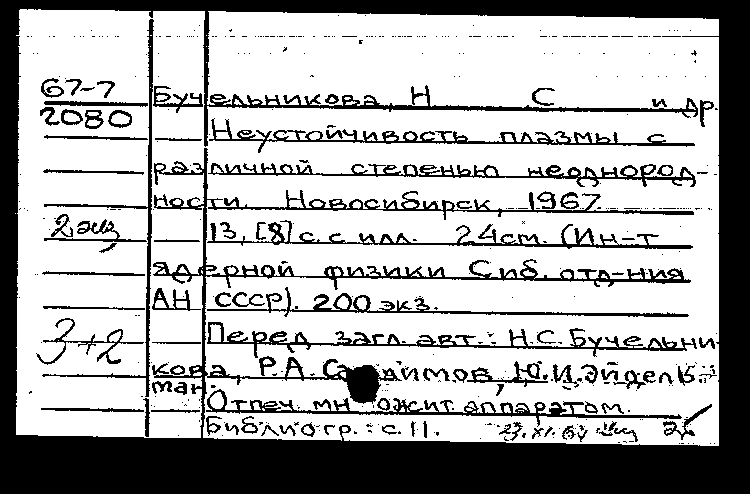 67-7
2080
Бучельникова, Н С и др.
Неустойчивость плазмы с
различной степенью неоднород-
ности. Новосибирск, 1967.
2 экз
13, [8] с. с илл. 24 cm. (Ин-т
ядерной физики Сиб. отд-ния
АН СССР). 200 экз.
3+2
Перед загл. авт.: Н.С. Бучельни-
кова, Р.А. Ю.И. Эйдель-
ман.
Отпеч. множит. аппаратом.
Библиогр.: с. 11.